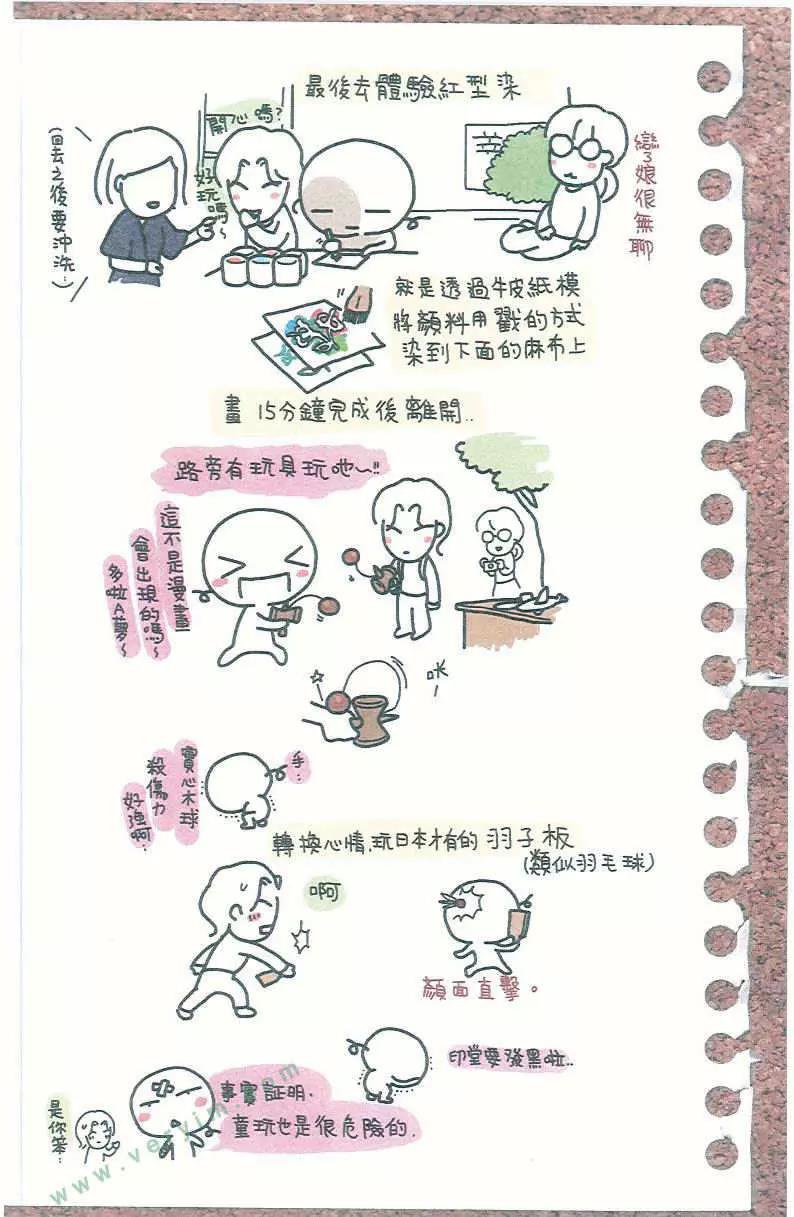 最後去體驗紅型染
(回去之後要沖洗…)
開心嗎?
好玩嗎~
孌了娘很無聊
就是透過牛皮紙模
將顏料用戳的方式
染到下面的麻布上
畫15分鐘完成後離開..
路旁有玩具玩吔~!!
這不是漫畫
會出現的嗎~
多啦A夢~
咔
手…
實心木球
殺傷力
好強啊…
轉換心情,玩日本才有的羽子板
(類似羽毛球)
啊
顏面直擊。
印堂要發黑啦..
事實証明,
童玩也是很危險的.
是你笨…
www.veryim.com